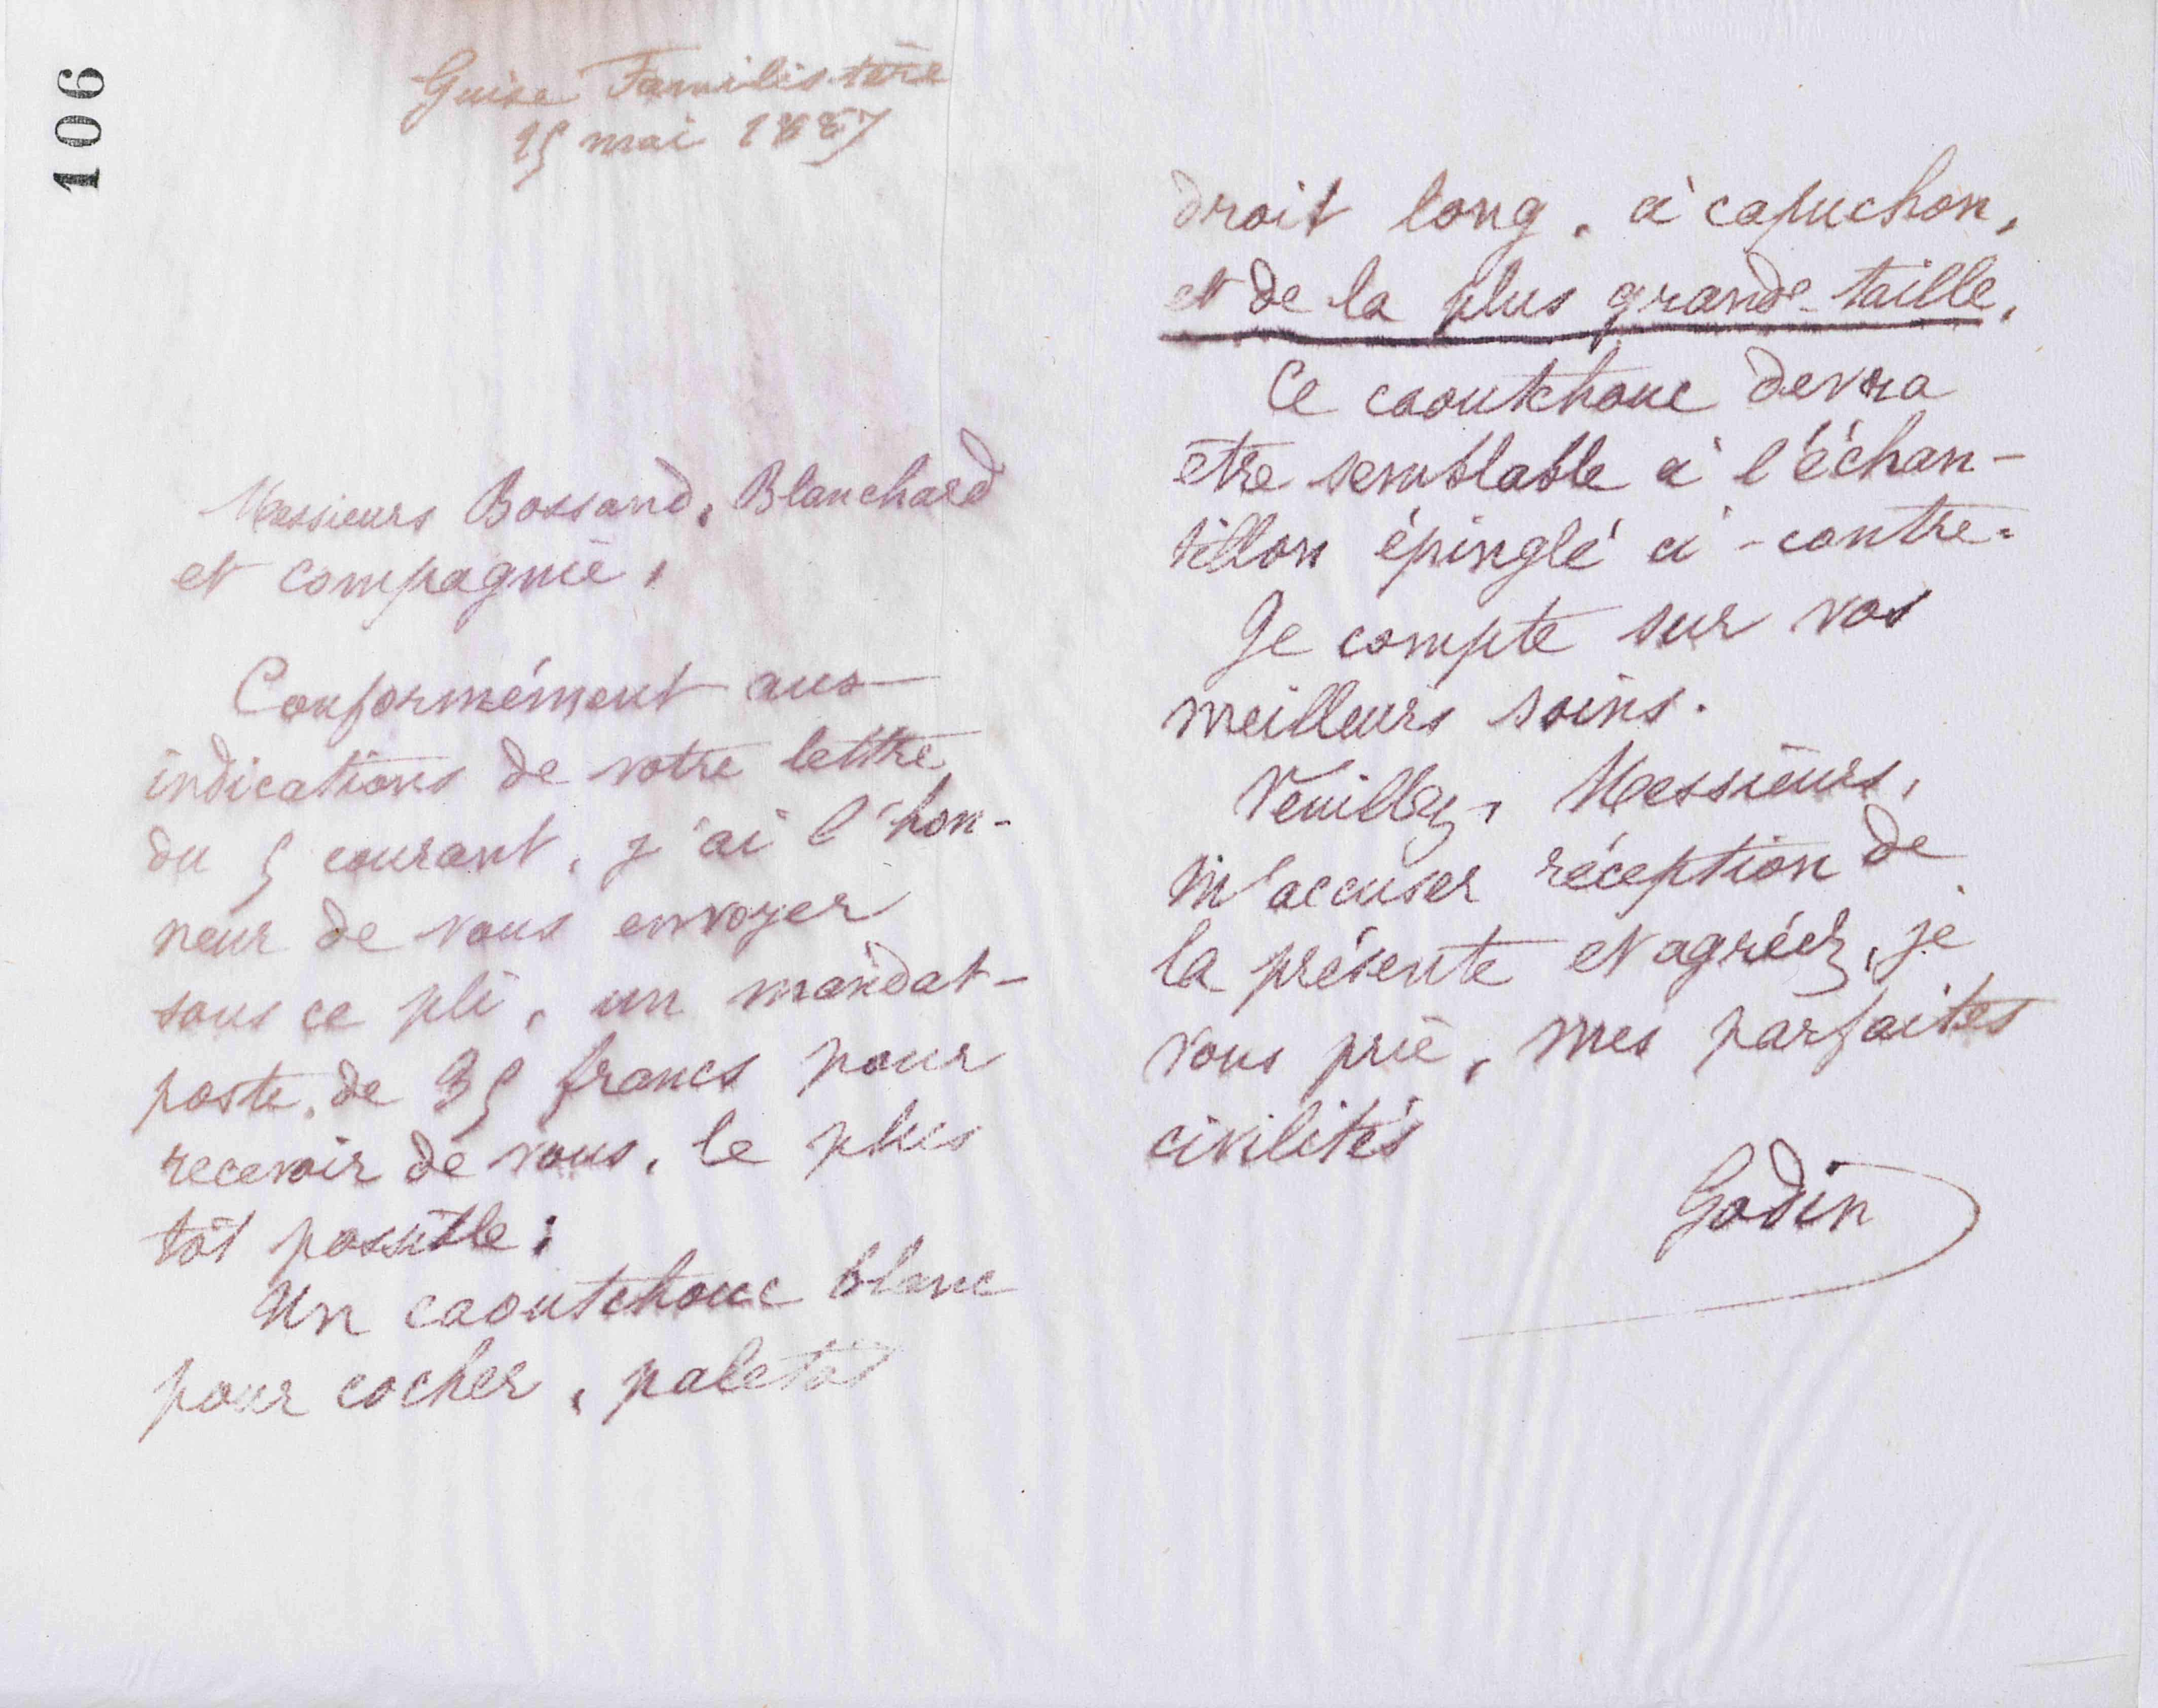 106
Guise Familistère
15 mai 1887
Messieurs Bossand, Blanchard
et compagnie,
Conformément aux
indications de votre lettre
du 5 courant, j'ai l'hon-
neur de vous envoyer
sous ce pli, un mandat-
poste, de 35 francs pour
recevoir de vous, le plus
tôt possible :
Un caoutchouc blanc
pour cocher, paletot
droit long, à capuchon,
et de la plus grande taille.
Ce caoutchouc devra
être semblable à l'échan-
tillon épinglé ci-contre.
Je compte sur vos
meilleurs soins.
Veuillez, Messieurs,
m'accuser réception de
la présente et agréez, je
vous prie, mes parfaites
civilités
Godin